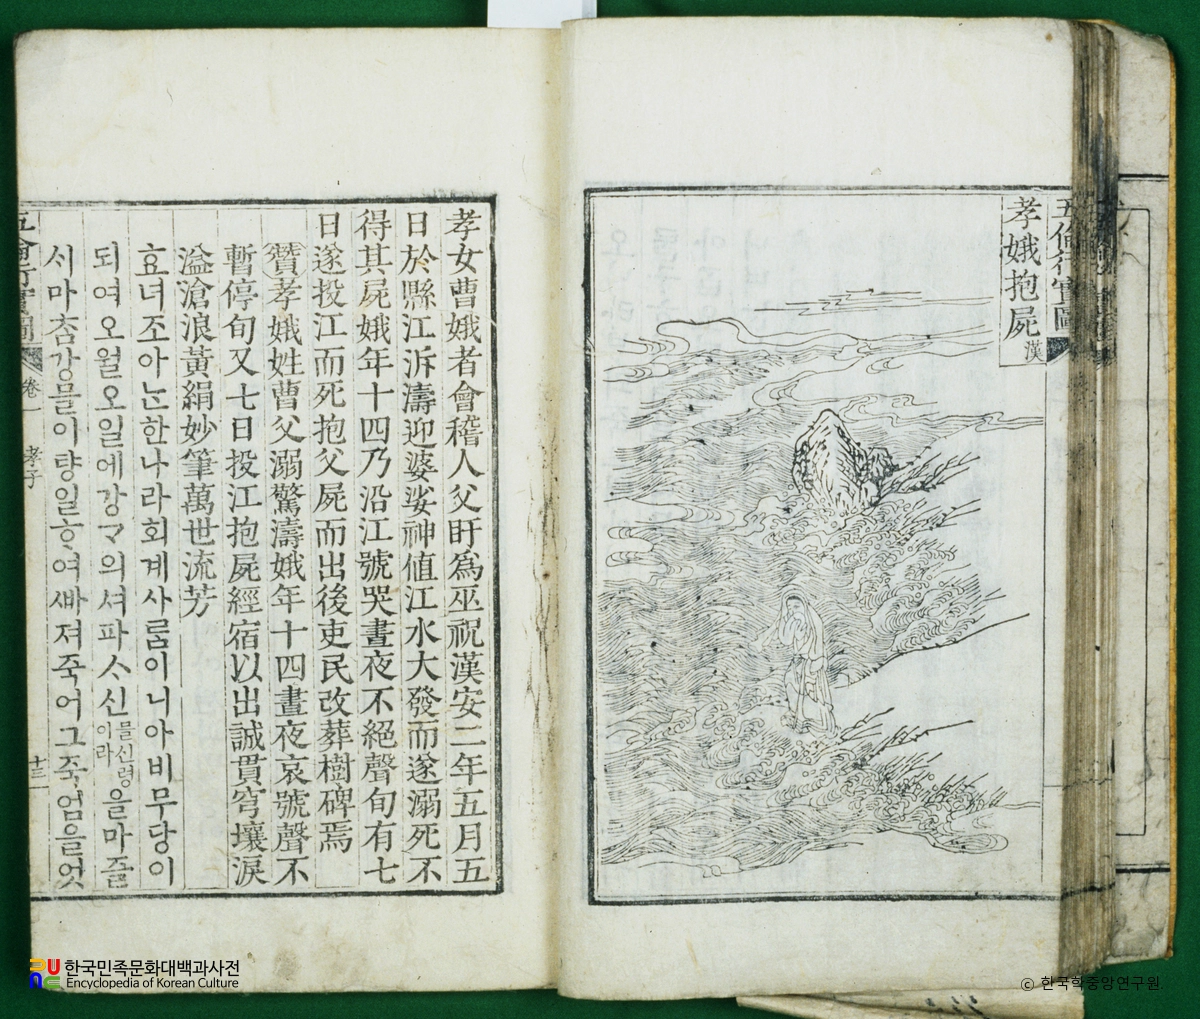 五倫行實圖
孝娥抱屍 漢
孝女曹娥者會稽人父盱爲巫祝漢安二年五月五
日於縣江泝濤迎婆娑神値江水大發而遂溺死不
得其屍娥年十四乃沿江號哭晝夜不絕聲旬有七
日遂投江而死抱父屍而出後吏民改葬樹碑焉
贊孝娥姓曹父溺驚濤娥年十四晝夜哀號聲不
暫停旬又七日投江抱屍經宿以出誠貫穹壤淚
溢滄浪黃絹妙筆萬世流芳
효녀조아ᄂᆞᆫ한나라회계사ᄅᆞᆷ이니아비무당이
되여오월오일에강ᄀᆞ의셔파사신믈신령이라을마즐
서마ᄎᆞᆷ강믈이턍일ᄒᆞ여ᄲᅡ져죽어그죽엄을엇
五倫行實圖
卷一
孝子
十三
한국민족문화대백과사전
Encyclopedia of Korean Culture
ⓒ 한국학중앙연구원.